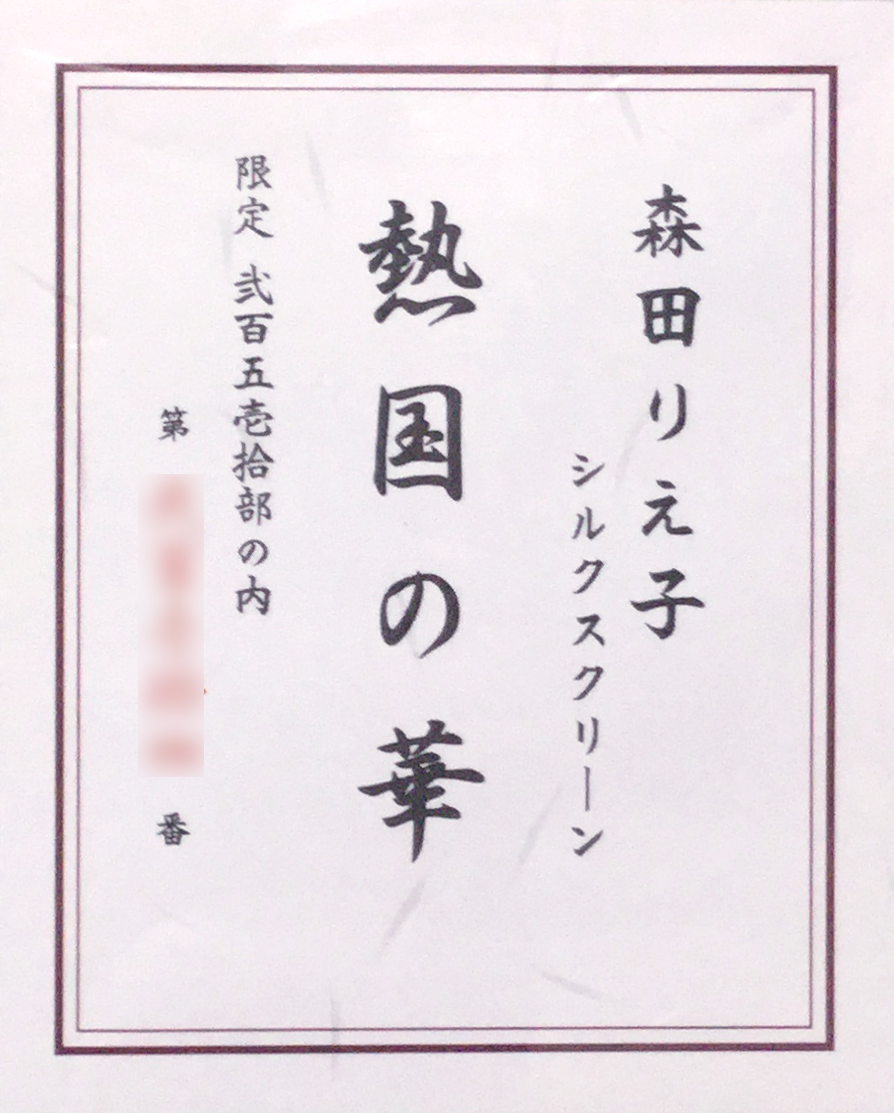 森田りえ子
シルクスクリーン
熱国の華
限定 弐百五壱拾部の内
第
番